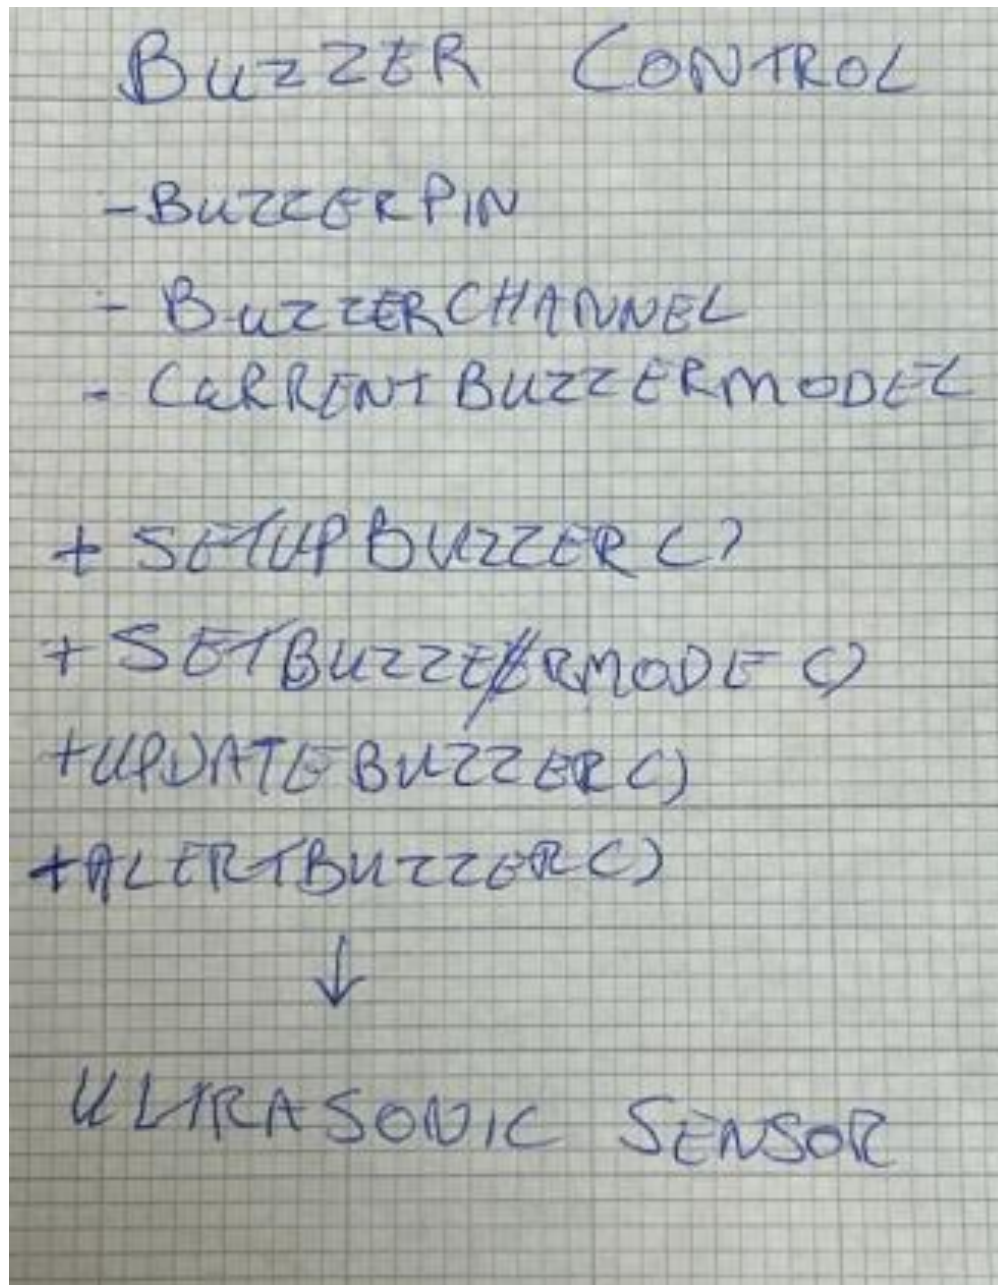 BUZZER CONTROL
- BUZZERPIN
- BUZZERCHANNEL
- CURRENTBUZZERMODEL
+ SETUPBUZZER()
+ SETBUZZERMODE()
+UPDATEBUZZER()
+ALERTBUZZER()
↓
ULTRASONIC SENSOR